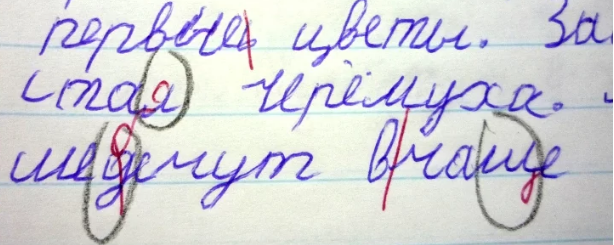 первые цветы. За
стая черёмуха.
в чаще